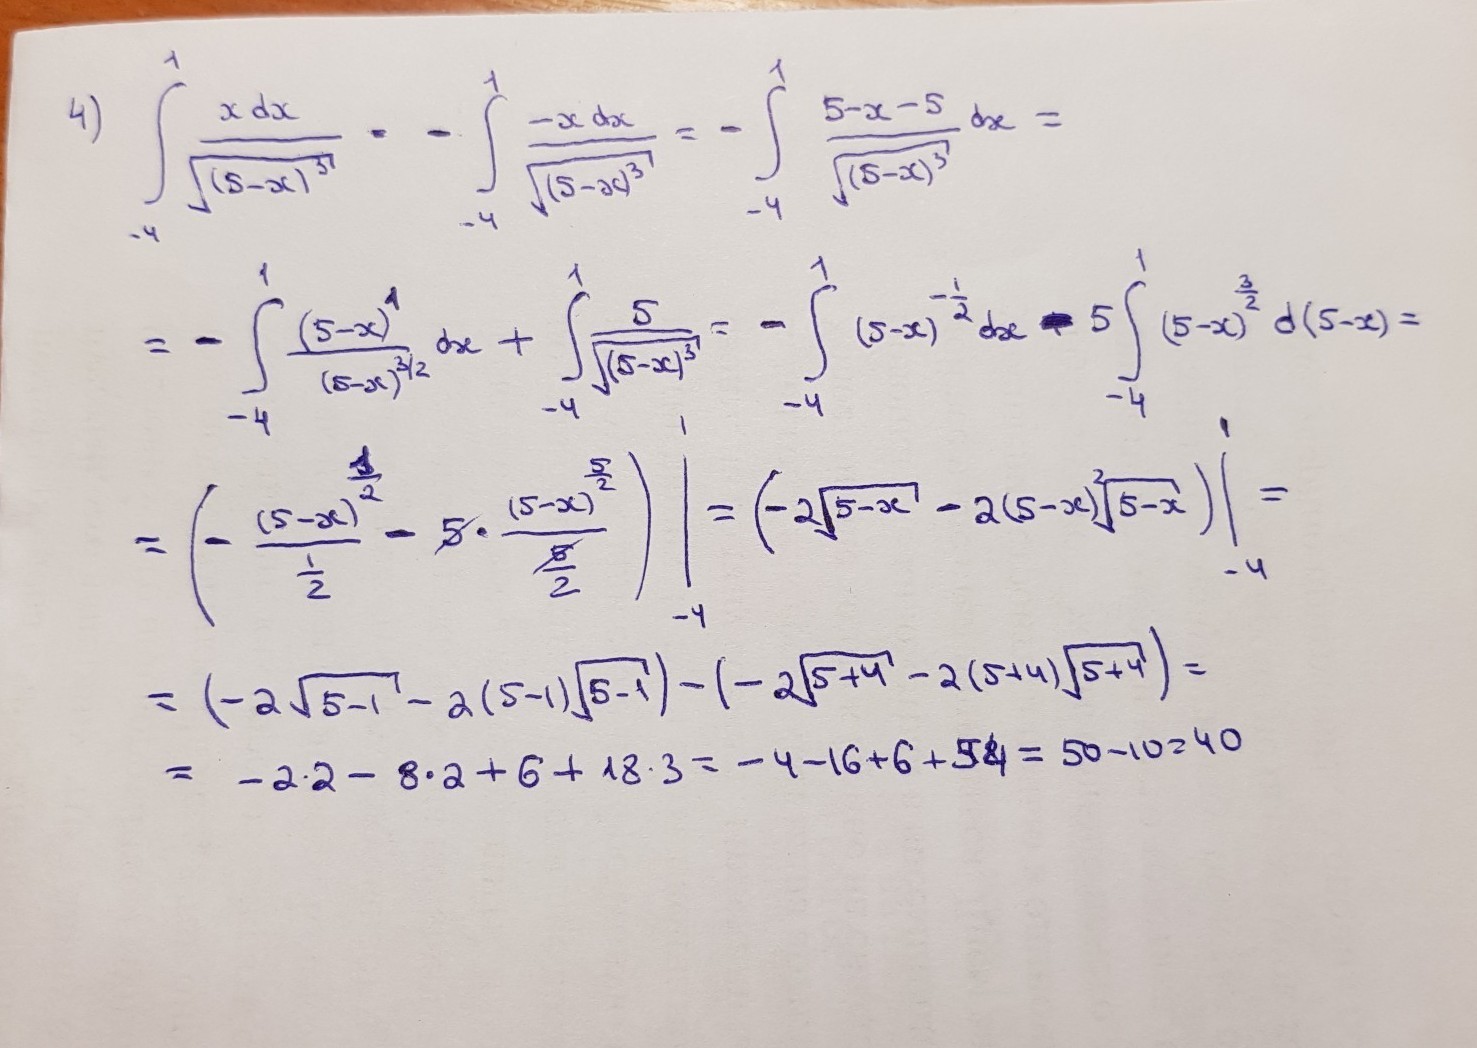 4) ∫₋₄¹ x dx / √(5-x)³ = - ∫₋₄¹ -x dx / √(5-x)³ = - ∫₋₄¹ (5-x-5) / √(5-x)³ dx =
= - ∫₋₄¹ (5-x)¹ / (5-x)^{3/2} dx + ∫₋₄¹ 5 / √(5-x)³ = - ∫₋₄¹ (5-x)^{-1/2} dx - 5 ∫₋₄¹ (5-x)^{3/2} d(5-x) =
= ( - (5-x)^{1/2} / (1/2) - 5 · (5-x)^{5/2} / (5/2) ) |₋₄¹ = ( -2√(5-x) - 2(5-x)²√(5-x) ) |₋₄¹ =
= (-2√(5-1) - 2(5-1)√(5-1)) - (-2√(5+4) - 2(5+4)√(5+4)) =
= -2·2 - 8·2 + 6 + 18·3 = -4-16+6+54 = 50-10=40